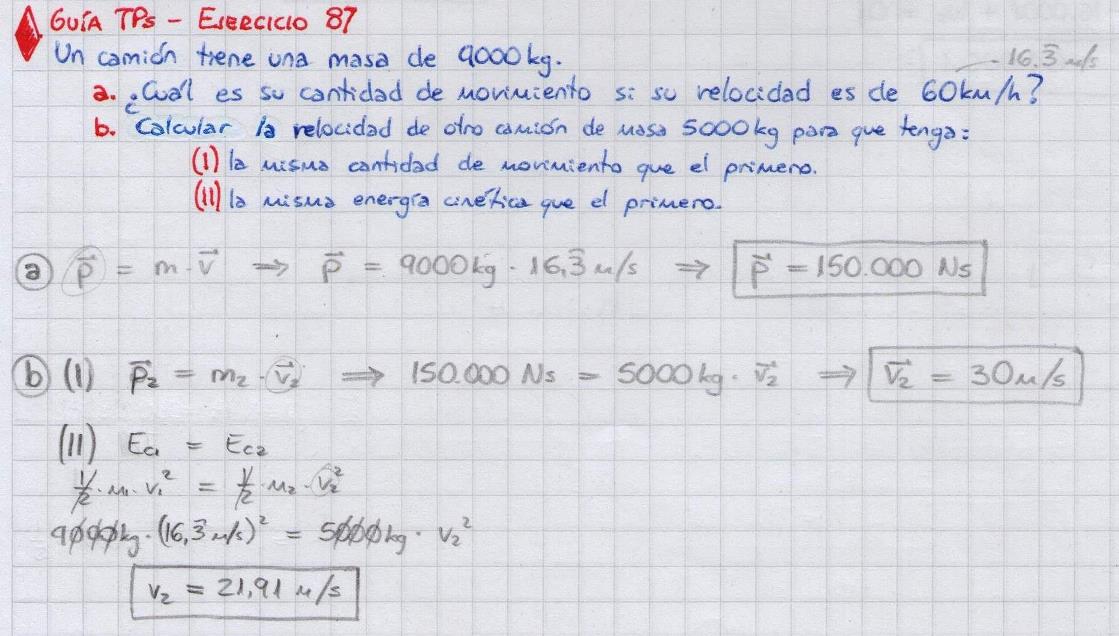 GUÍA TPs - EJERCICIO 87
Un camión tiene una masa de 9000 kg.
16,3̄ m/s
a. ¿Cuál es su cantidad de movimiento si su velocidad es de 60 km/h?
b. Calcular la velocidad de otro camión de masa 5000 kg para que tenga:
(I) la misma cantidad de movimiento que el primero.
(II) la misma energía cinética que el primero.
ⓐ p⃗ = m · v⃗ ⇒ p⃗ = 9000 kg · 16,3̄ m/s ⇒ p⃗ = 150.000 Ns
ⓑ (I) p⃗₂ = m₂ · v⃗₂ ⇒ 150.000 Ns = 5000 kg · v⃗₂ ⇒ v⃗₂ = 30 m/s
(II) Ec₁ = Ec₂
1/2 · m₁ · v₁² = 1/2 · m₂ · v₂²
9000 kg · (16,3̄ m/s)² = 5000 kg · v₂²
v₂ = 21,91 m/s